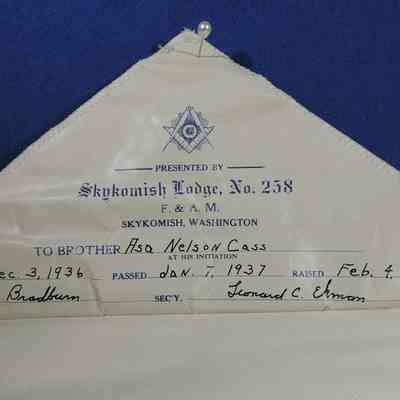 PRESENTED BY
Skykomish Lodge, No. 258
F. & A. M.
SKYKOMISH, WASHINGTON
TO BROTHER Asa Nelson Cass
AT HIS INITIATION
ec 3, 1936 PASSED Jan. 7, 1937 RAISED Feb. 4,
Bradburn SEC'Y. Leonard C. Ekman